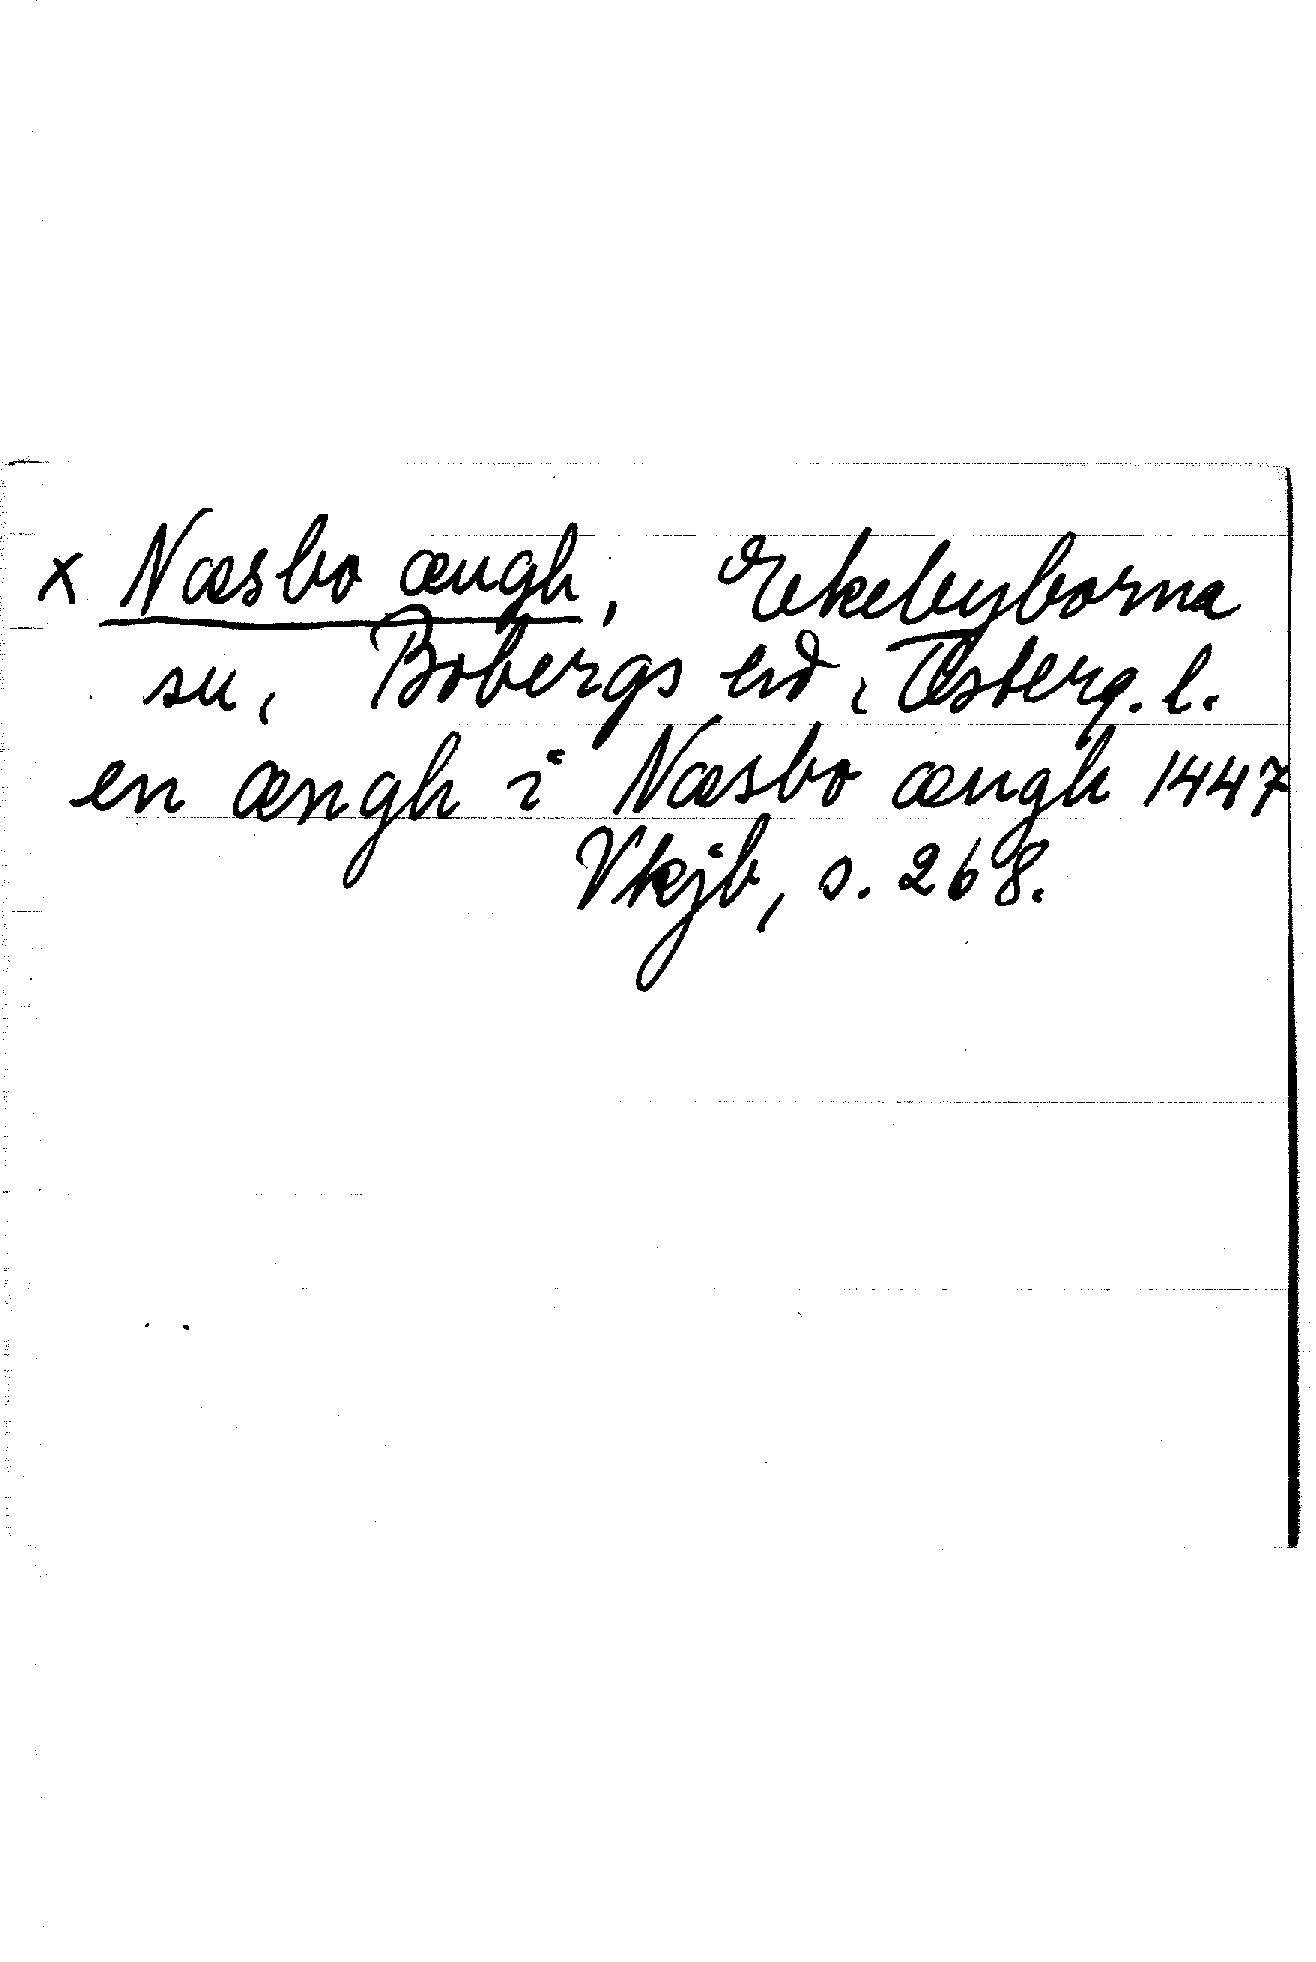 x Næsbo ængh, Ekebyborna
sn, Bobergs hd, Österg. l.
en ængh i Næsbo ængh 1447
Vkjb, s. 268.